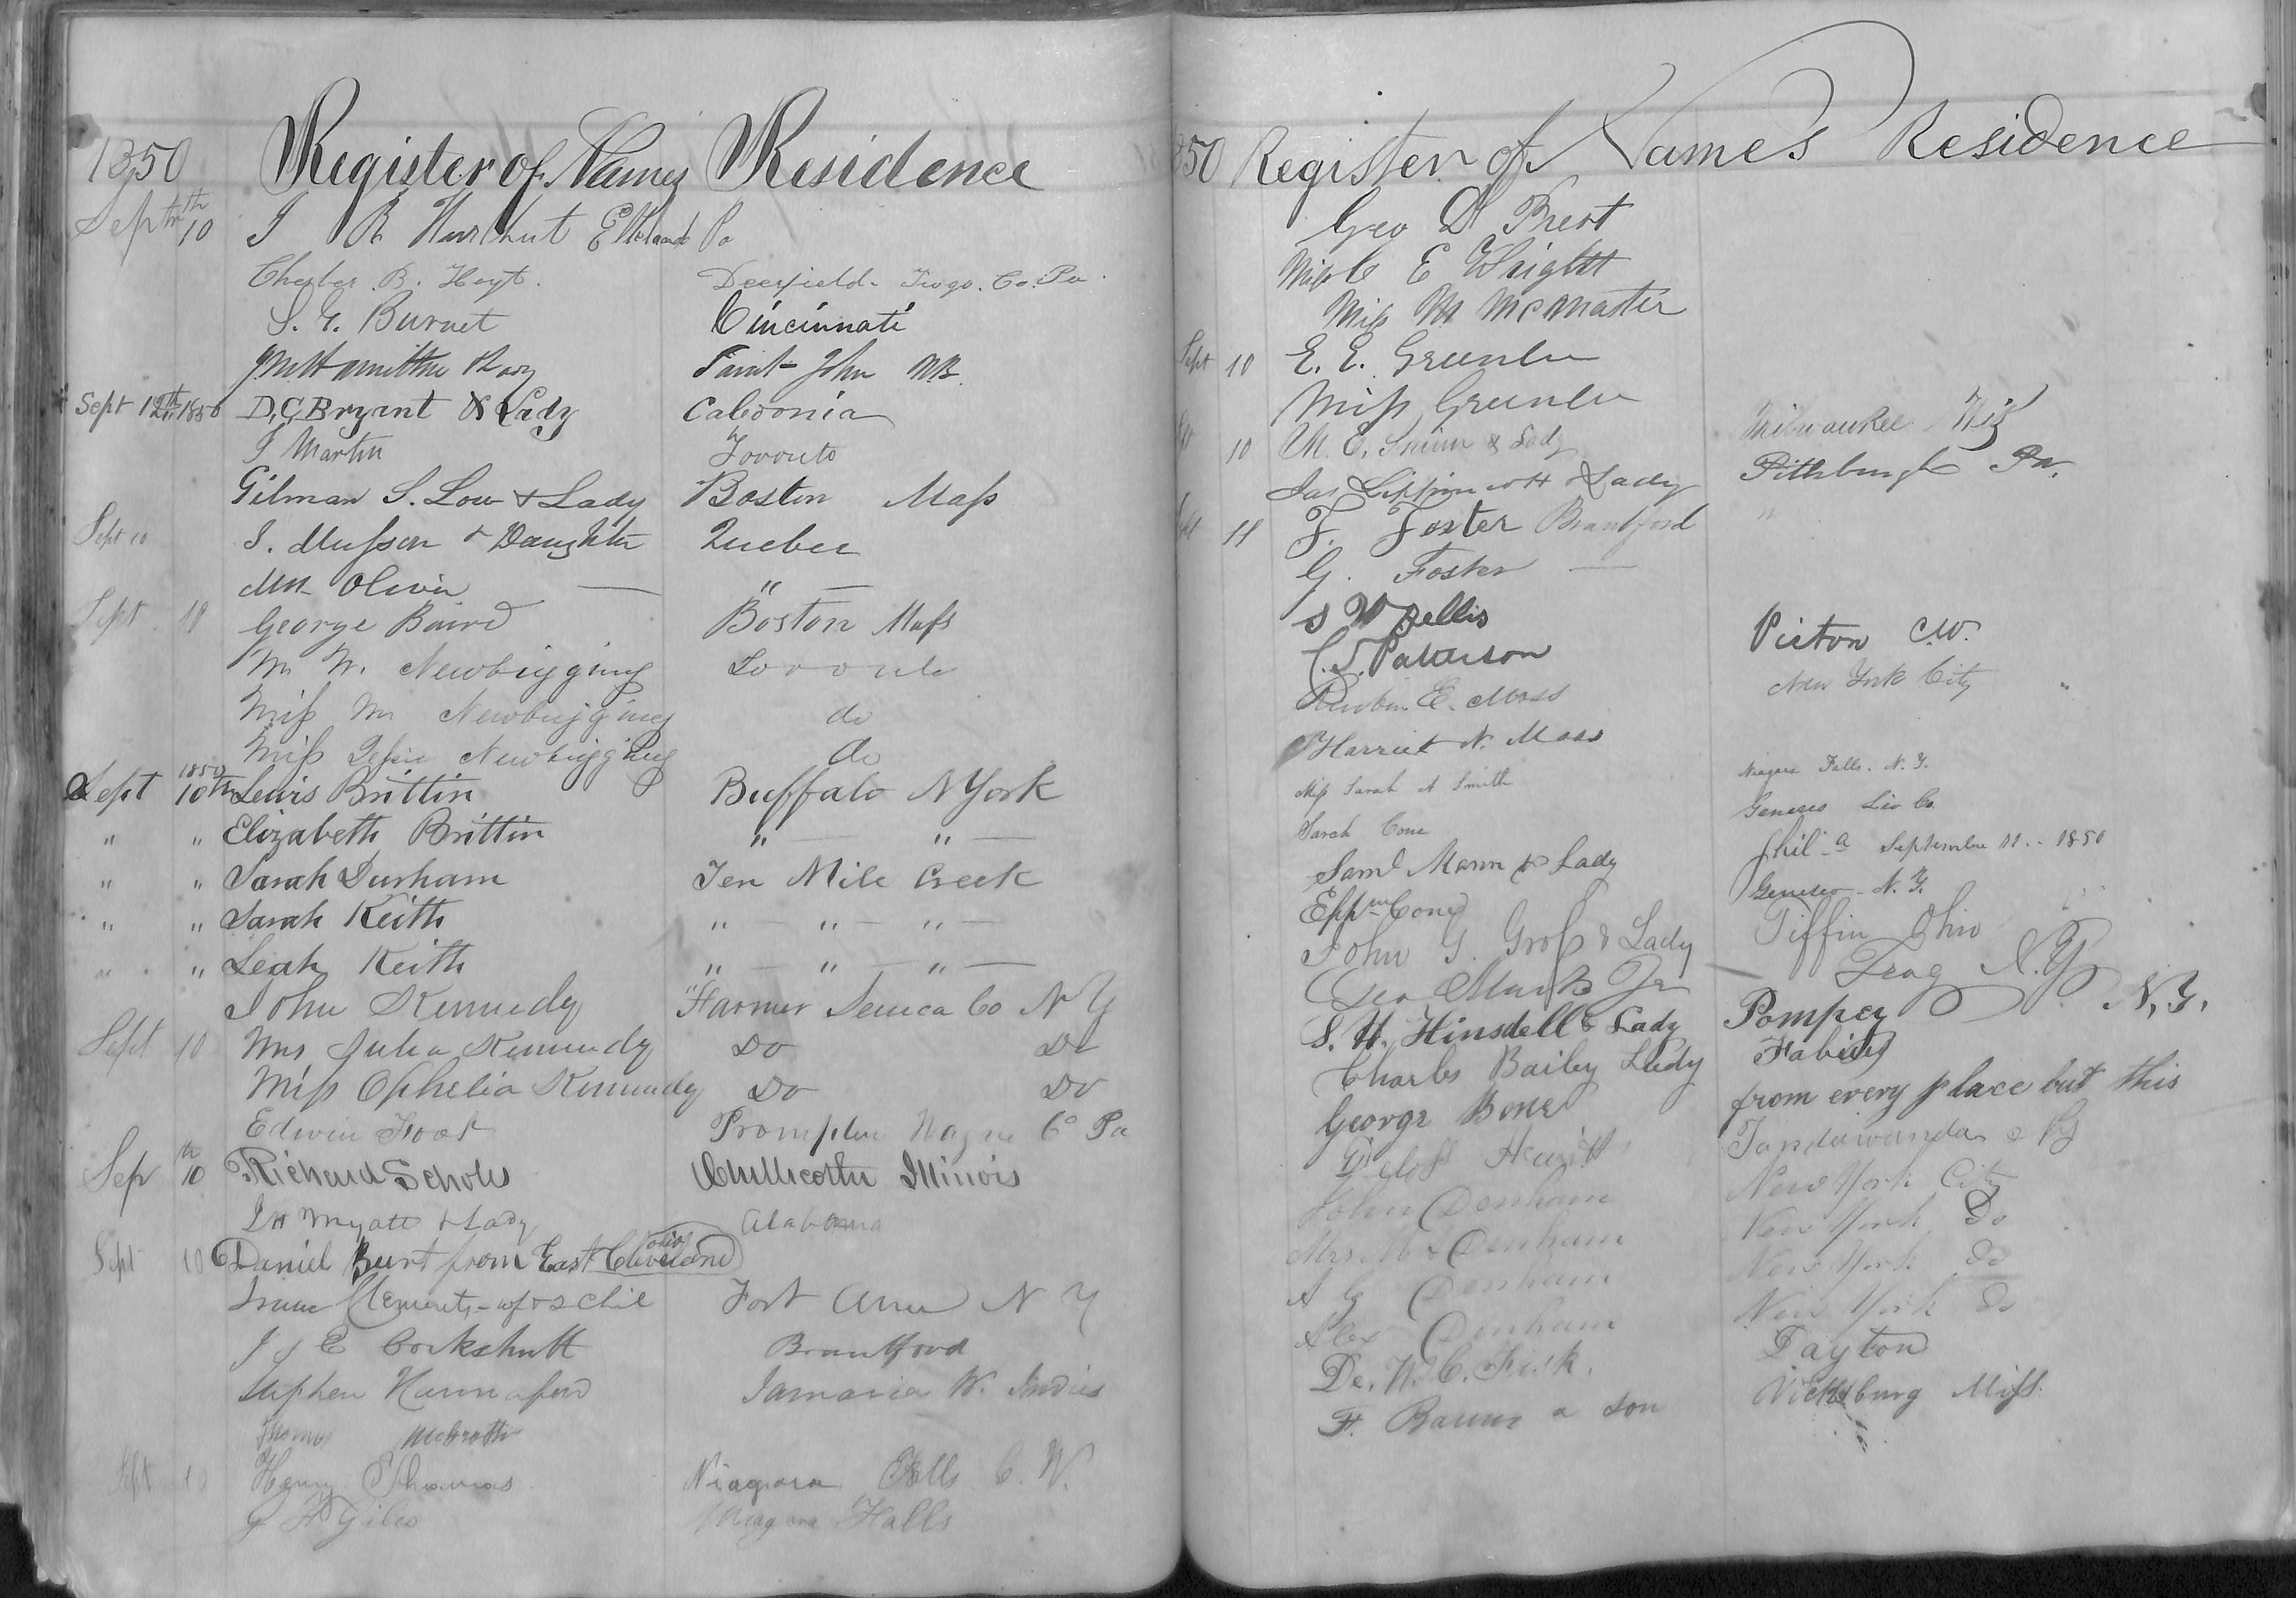 1850 Register of Names Residence
Septm 10th J R Hurlbut Elkland Pa
Chester B. Hoyt. Deerfield. Tioga. Co. Pa.
S. G. Burnet Cincinnati
Saint John NB.
Sept 12th 1850 D. C. Bryant & Lady Caledonia
J Martin Toronto
Gilman S. Low & Lady Boston Mass
Sept 10 S. Musson & Daughter Quebec
Mrs Oliver — " —
Sept 10 George Baird Boston Mass
Mr W. Newbigging Toronto
Miss M Newbigging do
Miss Jessie Newbigging do
Sept 1850 10th Lewis Brittin Buffalo N York
" " Elizabeth Brittin " — " —
" " Sarah Durham Ten Mile Creek
" " Sarah Keith " — " — " —
" " Leah Keith " — " — " —
John Kennedy Farmer Seneca Co N Y
Sept 10 Mrs Julia Kennedy Do Do
Miss Ophelia Kennedy Do Do
Edwin Foot Prompton Wayne Co Pa
Sep 10th Richard Scholes Chillicothe Illinois
J H Myatt & Lady Alabama
Sept 10 Daniel Burt from East Cleveland Ohio
Isaac Clements - wf & 2 chil Fort Ann N Y
I & E Cockshutt Brantford
Stephen Hannaford Jamaica W. Indies
Thomas McGrath
Sept 10 Henry Thomas Niagara Falls C. W.
G H Giles Niagara Falls
850 Register of Names Residence
Geo D Prest
Miss C E Wright
Miss M McMaster
Sept 10 E. E. Greenlee
Miss Greenlee
10 M. E. & Lady Milwaukee Wis
Jas Lippincott & Lady Pittsburgh Pa.
11 F. Foster Brantford "
G. Foster —
S W Bellis
C. S. Patterson Picton C.W.
Reuben E. Moss New York City "
Harriet N. Moss
Miss Sarah A Smith Niagara Falls. N. Y.
Sarah Cone Geneseo Liv Co.
Saml Mann & Lady Phila September 11.. 1850
Eppm Cone Geneseo - N. Y.
John G. Gross & Lady Tiffin Ohio
Geo Jr N.Y.
S. H. Hinsdell & Lady Pompey N. Y.
Charles Bailey Lady Fabius
George Bone from every place but this
Hewitt
John Denham New York City
Mrs M Denham New York Do
A G Denham New York Do
Alex Denham New York Do
De. W. C. Fisk. Dayton
F. Baum & Son Vicksburg Miss.